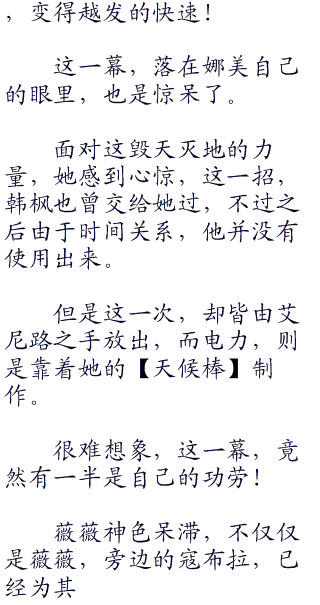 ，变得越发的快速！
这一幕，落在娜美自己
的眼里，也是惊呆了。
面对这毁天灭地的力
量，她感到心惊，这一招，
韩枫也曾交给她过，不过之
后由于时间关系，他并没有
使用出来。
但是这一次，却皆由艾
尼路之手放出，而电力，则
是靠着她的【天候棒】制
作。
很难想象，这一幕，竟
然有一半是自己的功劳！
薇薇神色呆滞，不仅仅
是薇薇，旁边的寇布拉，已
经为其